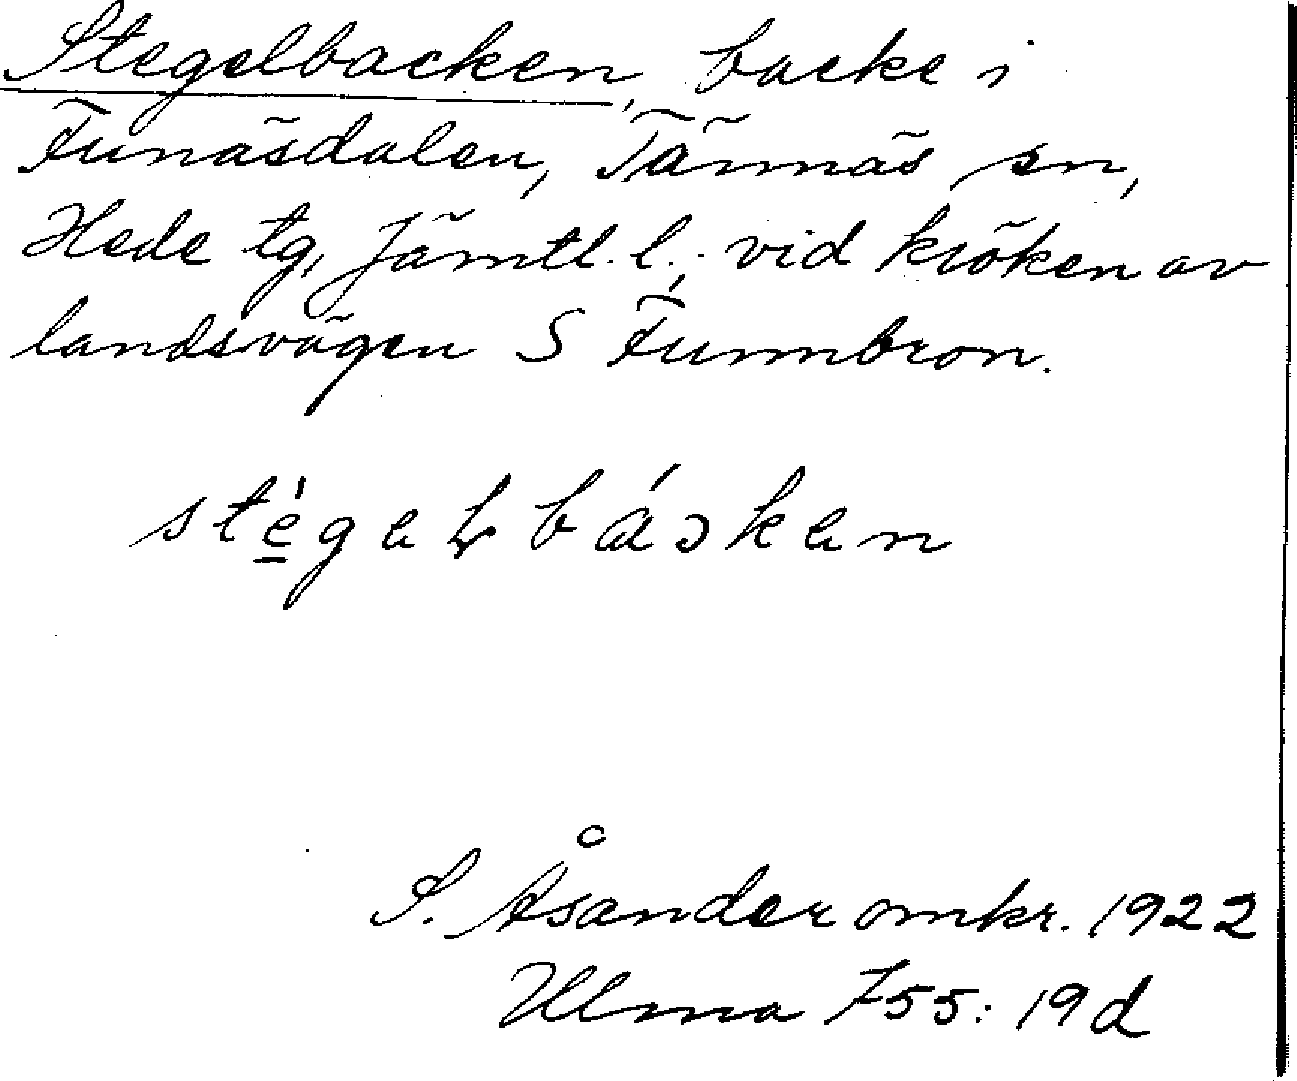 Stegelbacken, backe i
Funäsdalen, Tännäs sn,
Hede tg, Jämtl. l.; vid kröken av
landsvägen S Funnbron.
stégeḷbáɔken
S. Åsander omkr. 1922
Ulma 755: 19d